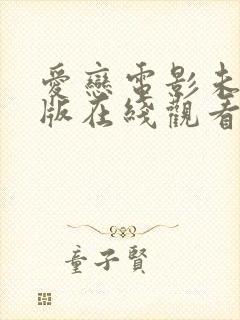 愛戀電影未
版在綫觀看
童子賢